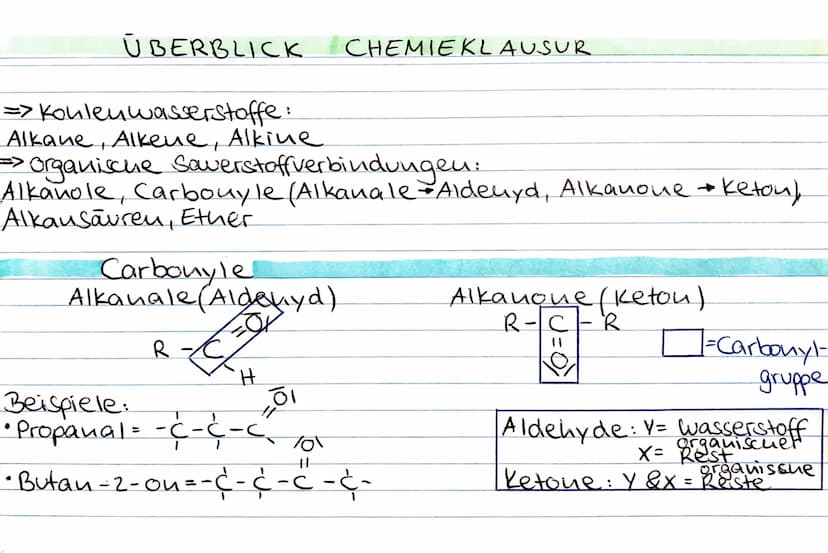 ÜBERBLICK CHEMIEKLAUSUR
=> Kohlenwasserstoffe:
Alkane, Alkene, Alkine
=> Organische Sauerstoffverbindungen:
Alkanole, Carbonyle (Alkanale → Aldehyd, Alkanone → Keton),
Alkansäuren, Ether
Carbonyle
Alkanale (Aldehyd)
R - C =O| H
Alkanone (Keton)
R - C - R
=
|O|
= Carbonyl-
gruppe
Beispiele:
• Propanal = -C-C-C =O|
• Butan-2-on = -C-C-C-C-
|O|
=
Aldehyde: Y= Wasserstoff
X= organischer Rest
Ketone: Y & X = organissche Reste